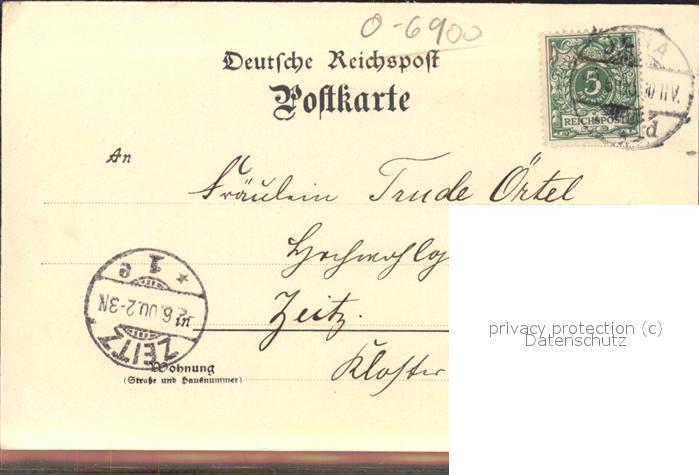 0-6900
Deutsche Reichspost
Postkarte
5
REICHSPOST
JENA
An
Fräulein Trude Örtel
Hochwohlg
Zeitz.
in
Kloster
Wohnung
(Straße und Hausnummer)
ZEITZ
6.00.2-3N
* 1 e
privacy protection (c)
Datenschutz